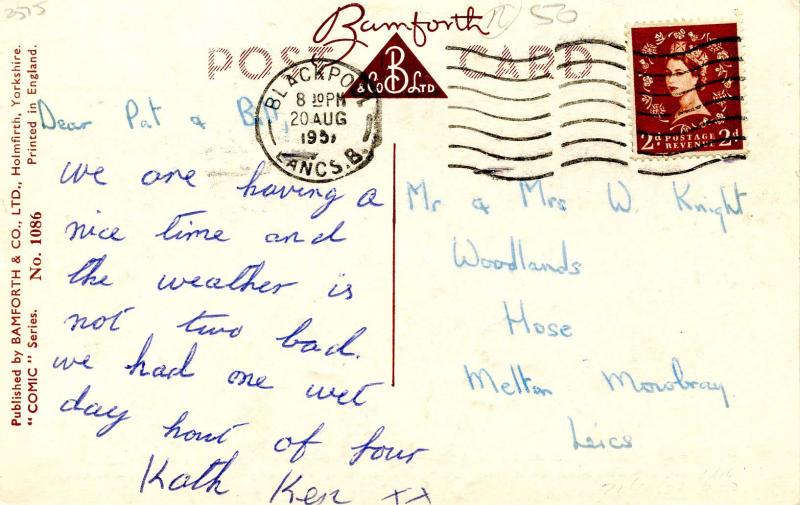 2515
50
Bamforth
POST CARD
B
& Co LTD
BLACKPOOL
8 30PM
20 AUG
195
LANCS. B.
2d POSTAGE REVENUE 2d
Published by BAMFORTH & CO., LTD., Holmfirth, Yorkshire.
Printed in England.
"COMIC" Series. No. 1086
Dear Pat & Bill,
we are having a
nice time and
the weather is
not two bad.
we had one wet
day hout of four
Kath Ken xx
Mr & Mrs W. Knight
Woodlands
Hose
Melton Mowbray
Leics